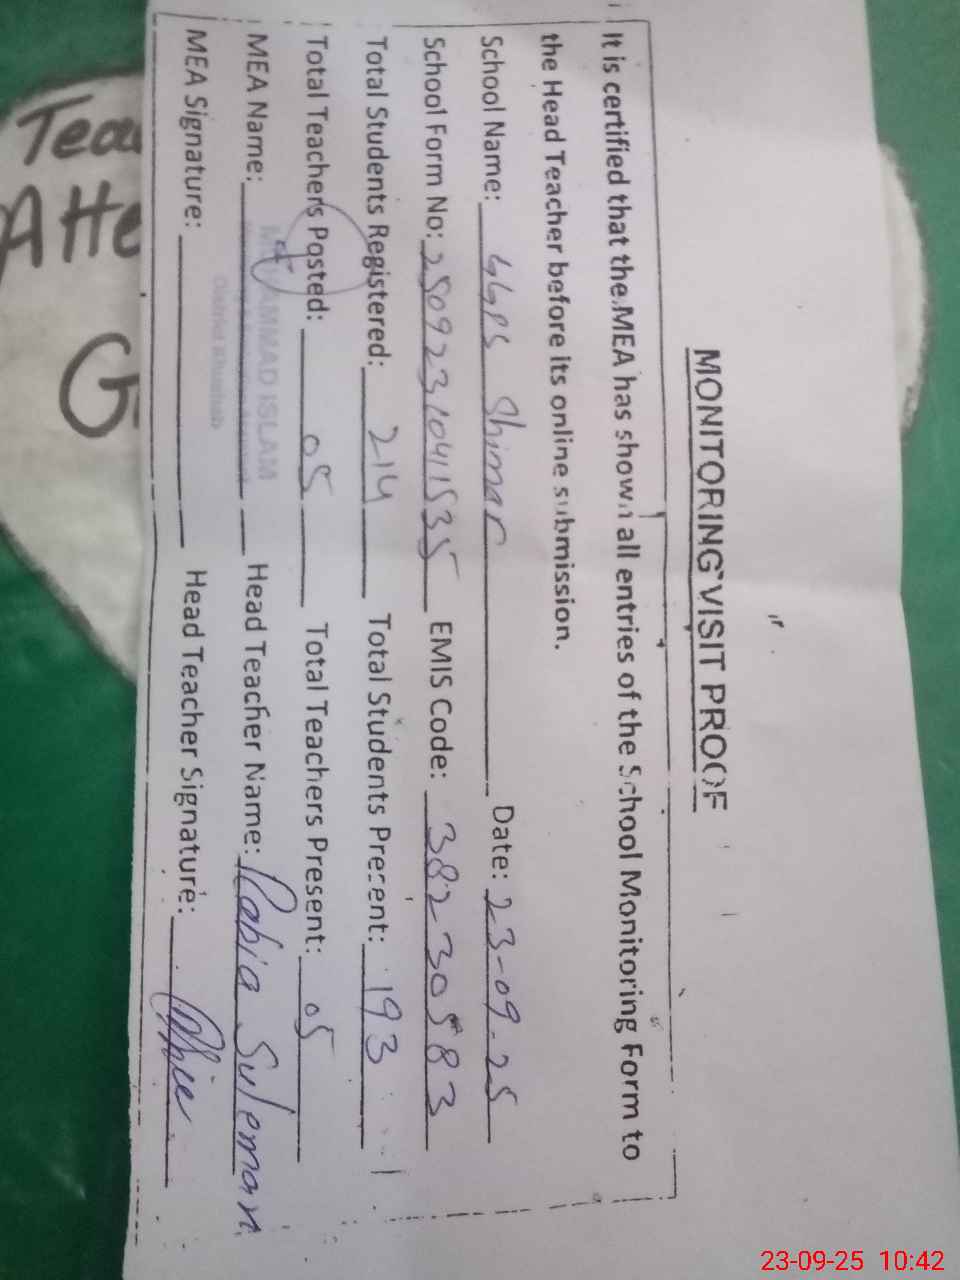 MONITORING VISIT PROOF
It is certified that the MEA has shown all entries of the School Monitoring Form to
the Head Teacher before its online submission.
School Name: GGPS Shimar Date: 23-09-25
School Form No: 2509231041535 EMIS Code: 38230583
Total Students Registered: 214 Total Students Present: 193
Total Teachers Posted: 05 Total Teachers Present: 05
MEA Name: MUHAMMAD ISLAM Head Teacher Name: Rabia Suleman
District Khushab
MEA Signature: Head Teacher Signature:
Tea
Atte
G
23-09-25 10:42